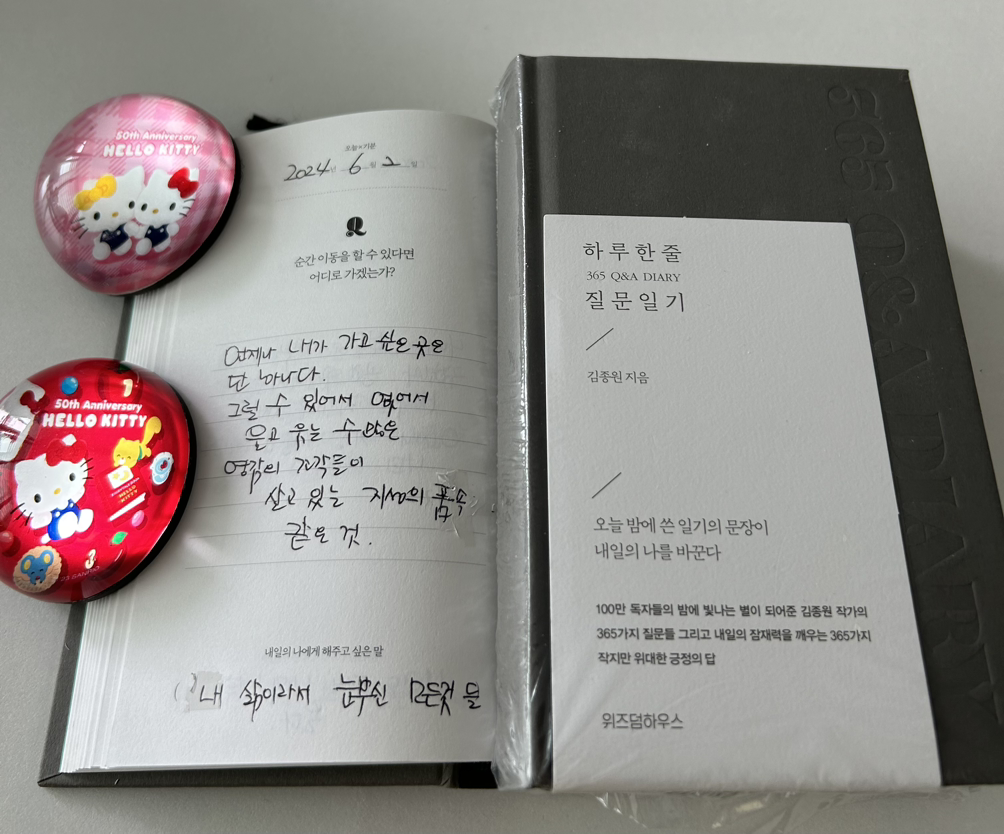 50th Anniversary
HELLO KITTY
50th Anniversary
HELLO KITTY
오늘의 기분
2024년 6월 2일
Q
순간 이동을 할 수 있다면
어디로 가겠는가?
언제나 내가 가고 싶은 곳은
단 하나다.
그럴 수 있어서 였어서
울고 웃는 수많은
영감의 조각들이
살고 있는 지성의 품속
같은 것.
내일의 나에게 해주고 싶은 말
내 삶이라서 눈부신 모든것 들
365 Q&A DIARY
하루 한 줄
365 Q&A DIARY
질문 일기
김종원 지음
오늘 밤에 쓴 일기의 문장이
내일의 나를 바꾼다
100만 독자들의 밤에 빛나는 별이 되어준 김종원 작가의
365가지 질문들 그리고 내일의 잠재력을 깨우는 365가지
작지만 위대한 긍정의 답
위즈덤하우스